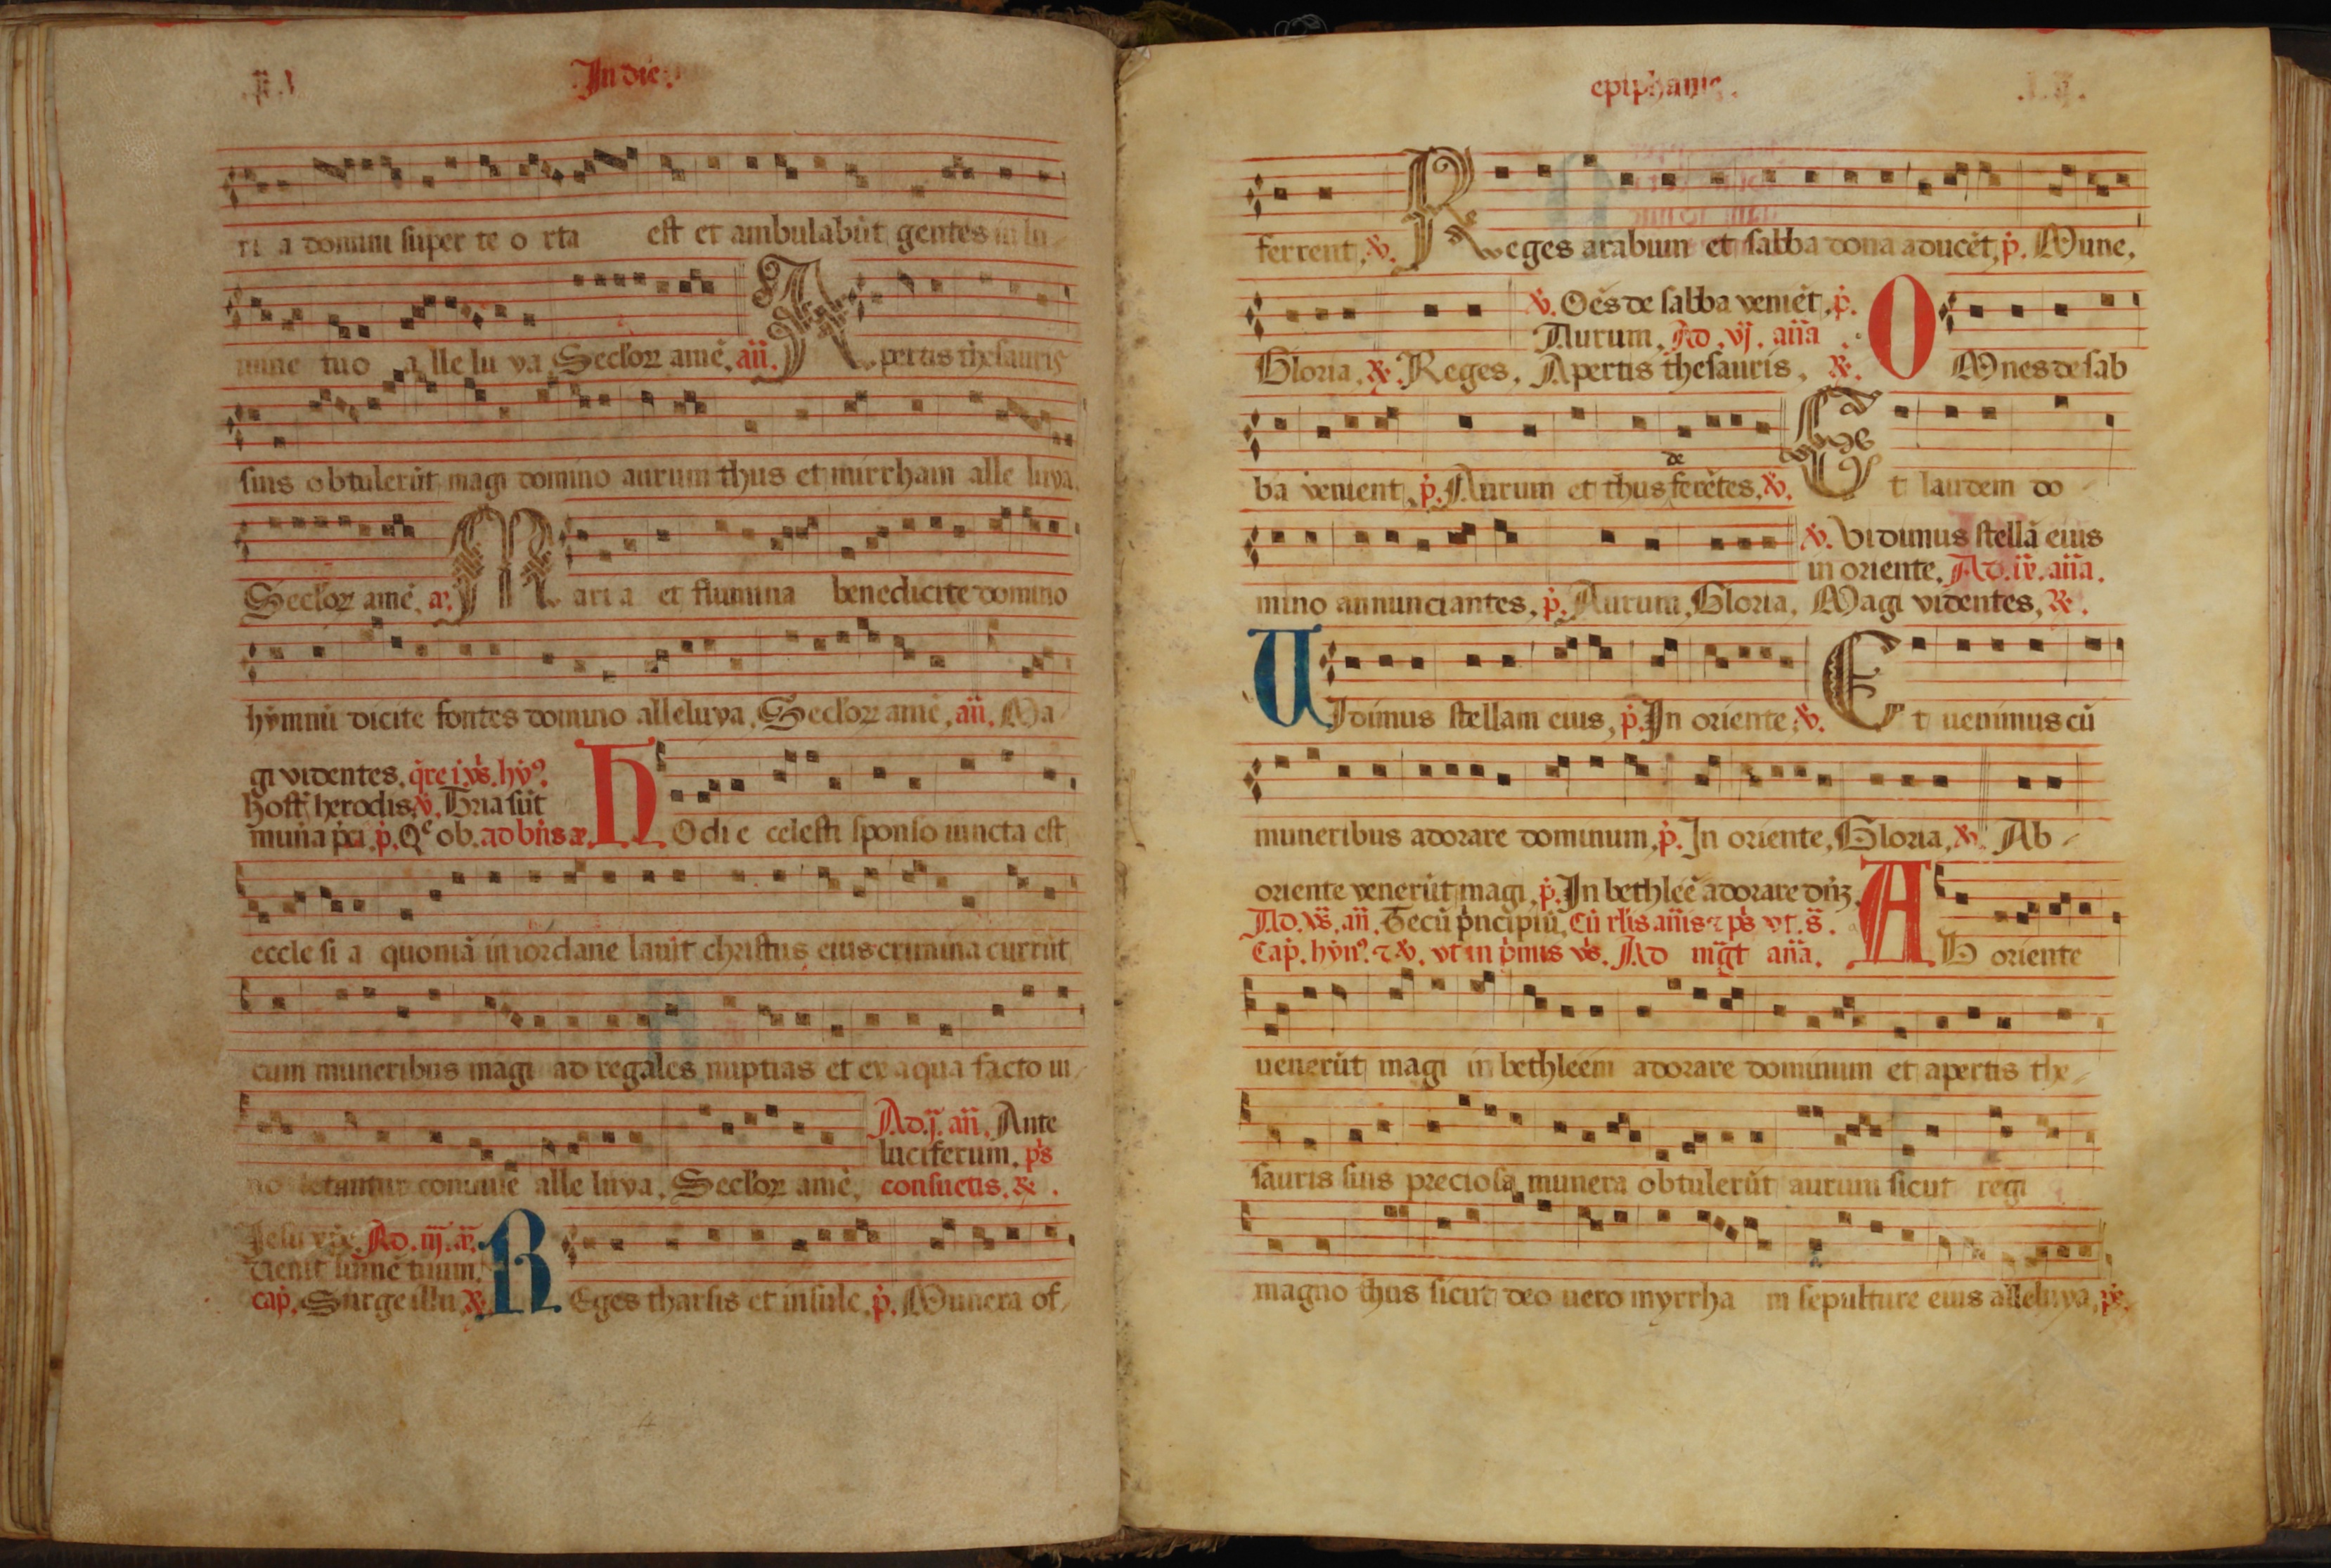 In die.
ri a domini super te o rta est et ambulabūt gentes in lu
mine tuo a lle lu ya Secl'oꝝ amē. añ. A pertis thesauris
suis obtulerūt magi domino aurum thus et mirrham alle luya.
Secl'oꝝ amē. a. M aria et flumina benedicite domino
hymnū dicite fontes domino alleluya. Secl'oꝝ amē. añ. Ma
gi videntes.
host' herodis
H Odie celesti sponso iuncta est
eccle si a quoniā in iordane lauit christus eius crimina currūt
cum muneribus magi ad regales nuptias et ex aqua facto ui
no letantur conuiue alle luya. Secl'oꝝ amē.
Ad .j. añ. Ante
luciferum. ps
consuetis. ꝶ.
Ad .iij. a.
uenit lumē tuum.
cap. Surge illu
R Eges tharsis et insule. p. Munera of
epiphanie.
ferrent. ꝟ. R eges arabum et sabba dona aducēt. p. Mune.
ꝟ. Oēs de sabba veniēt. p.
Aurum. Ad .vj. aña
Gloria. ꝶ. Reges. Apertis thesauris. ꝶ. O Mnes de sab
ba venient. p. Aurum et thus deferētes. ꝟ. E t laudem do
ꝟ. Vidimus stellā eius
in oriente. Ad .ix. aña.
mino annunciantes. p. Aurum. Gloria. Magi videntes. ꝶ.
V Idimus stellam eius. p. In oriente. ꝟ. E t uenimus cū
muneribus adorare dominum. p. In oriente. Gloria. ꝟ. Ab
oriente venerūt magi. p. In bethleē adorare dn̄ꝫ.
Ad. vs. añ. Tecū pncipiū. Cū rlis añis ⁊ ps vt. s.
Cap. hyn. ⁊ ꝟ. vt in pmis vs. Ad mḡt aña. A B oriente
uenerūt magi in bethleem adorare dominum et apertis the
sauris suis preciosa munera obtulerūt aurum sicut regi
magno thus sicut deo uero myrrha m sepulture eius alleluya. p.